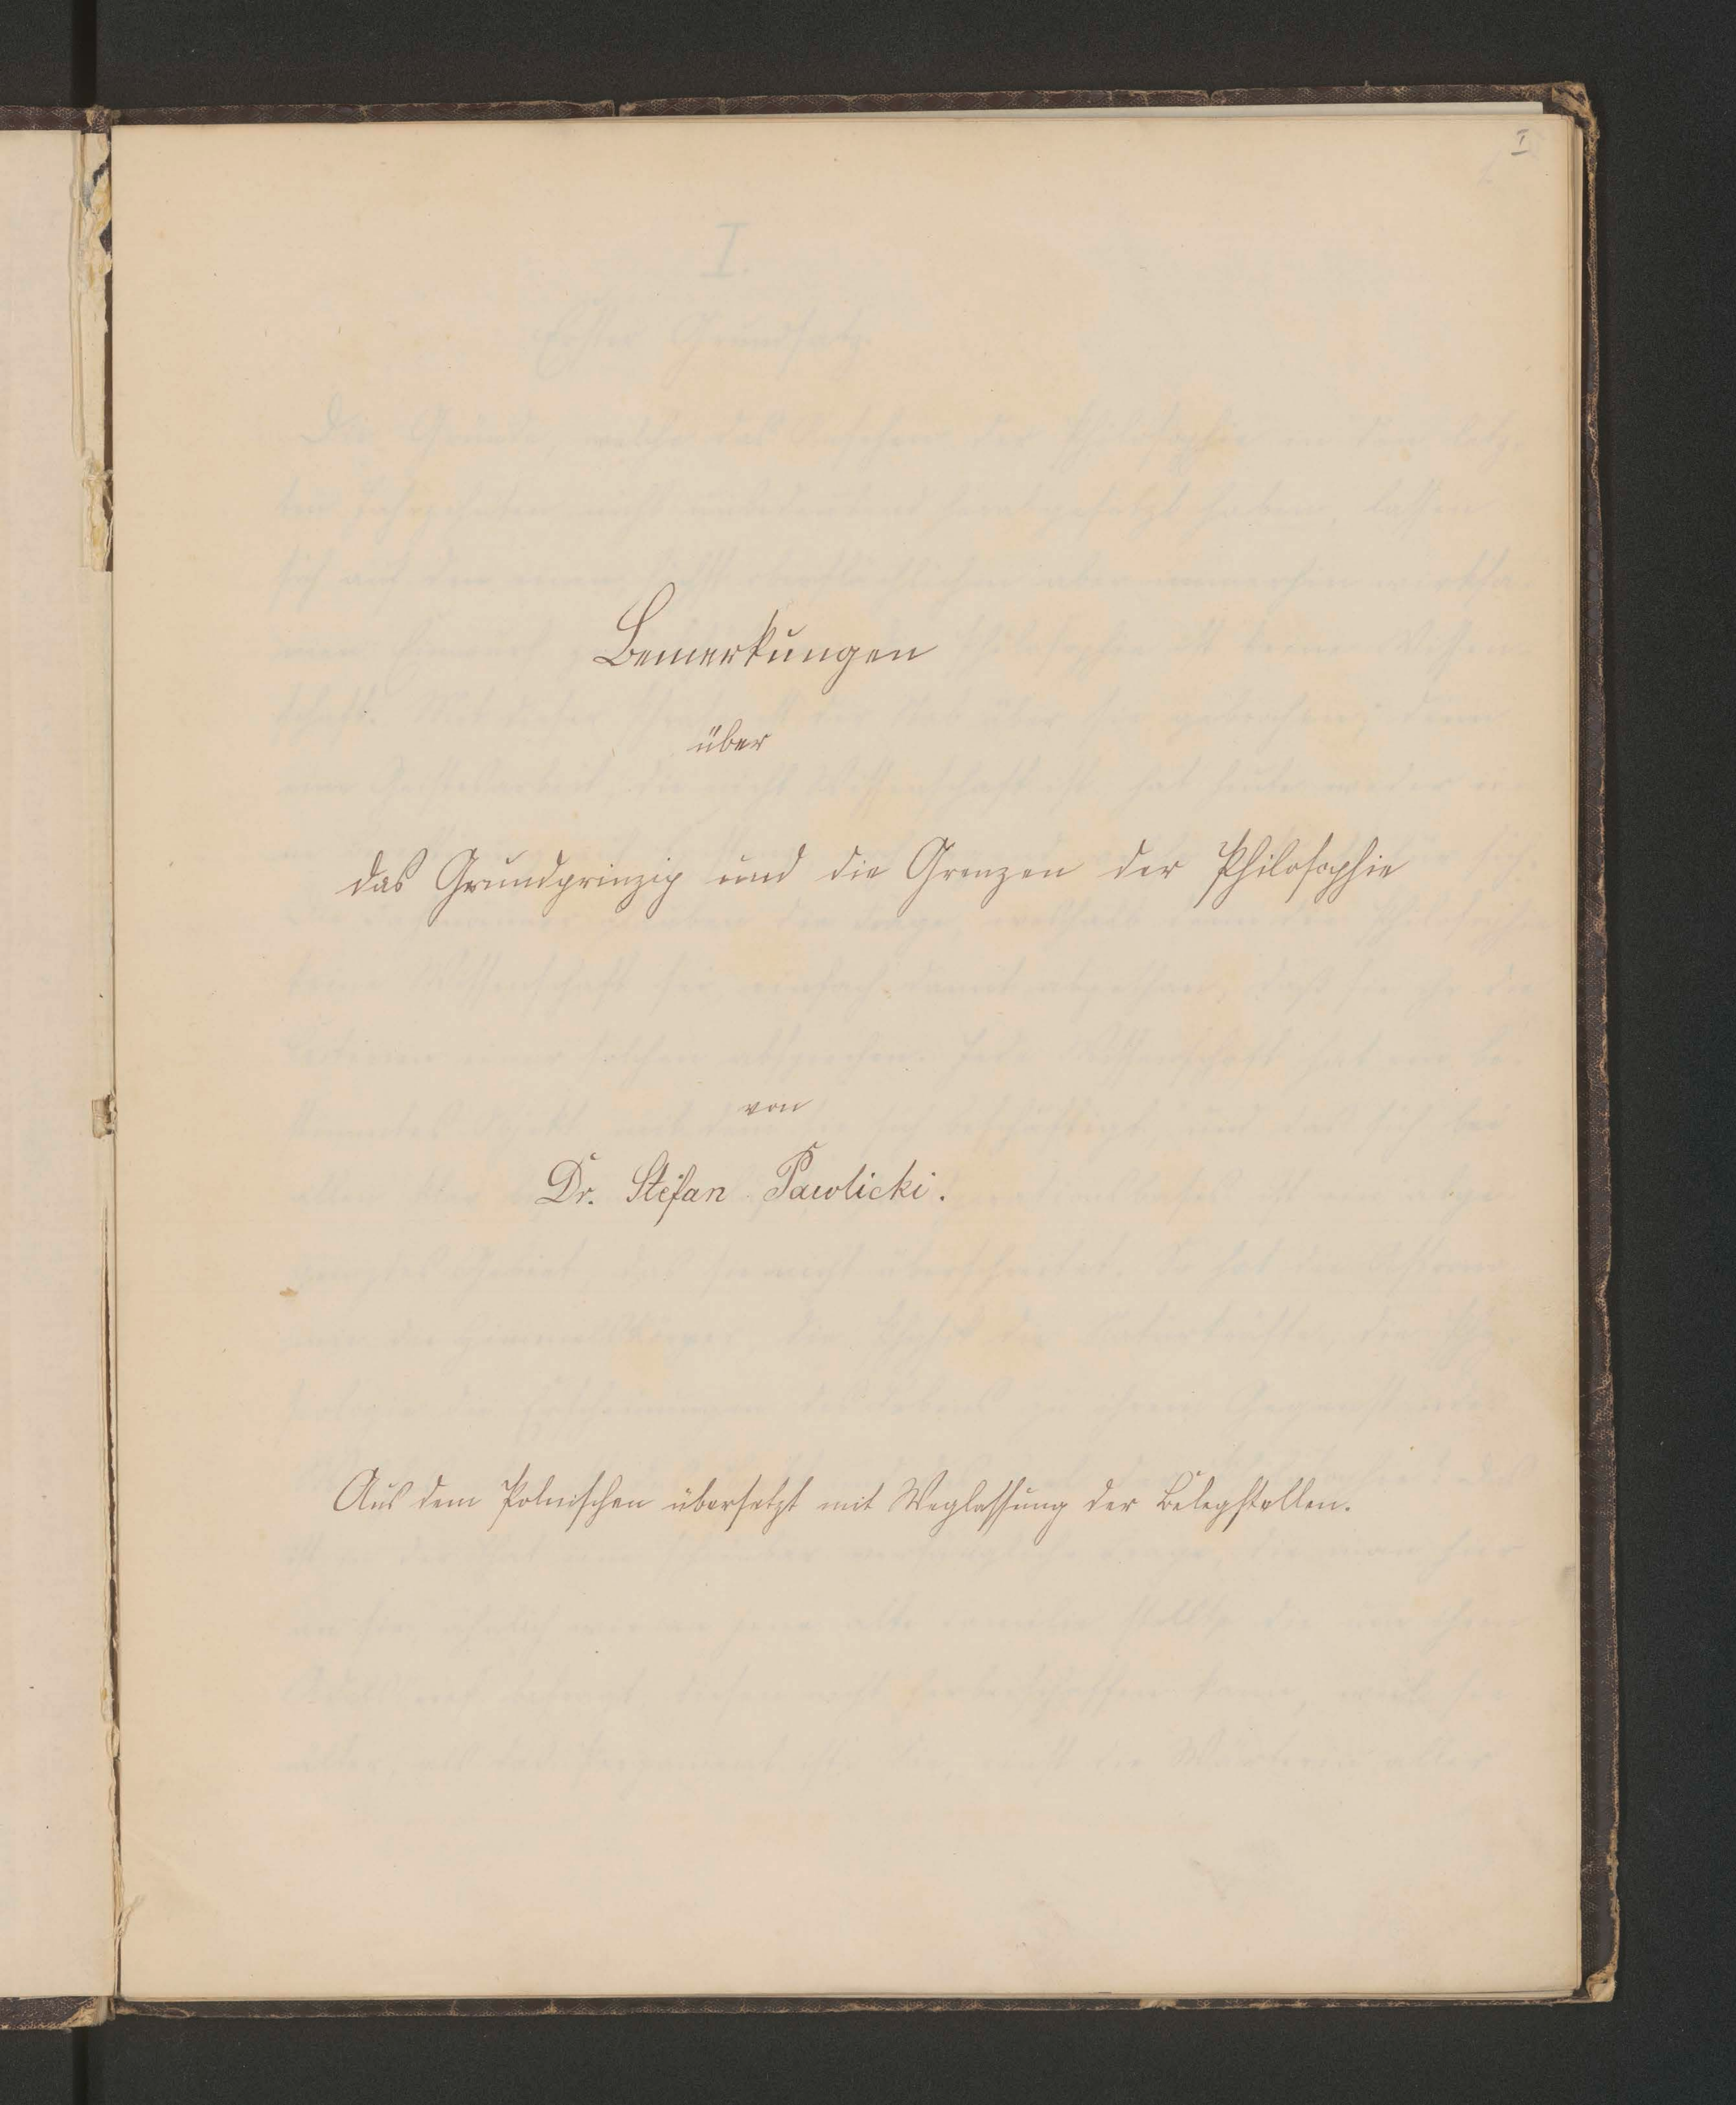 I
Bemerkungen
über
das Grundprinzip und die Grenzen der Philosophie
von
Dr. Stefan Pawlicki.
Aus dem Polnischen übersetzt mit Weglassung der Belegstellen.